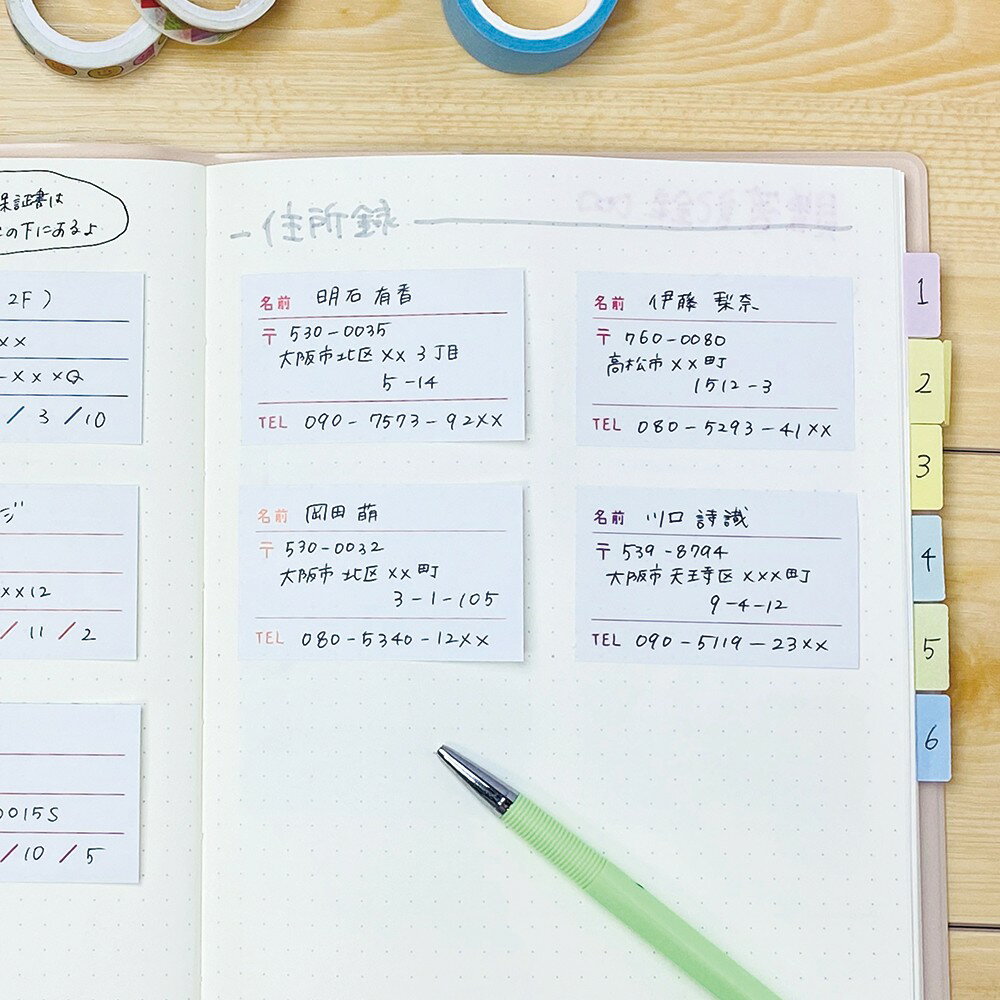 保証書は
の下にあるよ
2F）
xx
-xxxQ
/ 3 /10
ジ
xx12
/ 11 / 2
0015S
/10 / 5
名前 明石 有香
〒 530-0035
大阪市北区 xx 3丁目
5-14
TEL 090-7573-92xx
名前 伊藤 梨奈
〒 760-0080
高松市xx町
1512-3
TEL 080-5293-41xx
名前 岡田 萌
〒 530-0032
大阪市 北区 xx町
3-1-105
TEL 080-5340-12xx
名前 川口 詩識
〒 539-8794
大阪市 天王寺区 xxx町
9-4-12
TEL 090-5119-23xx
1
2
3
4
5
6